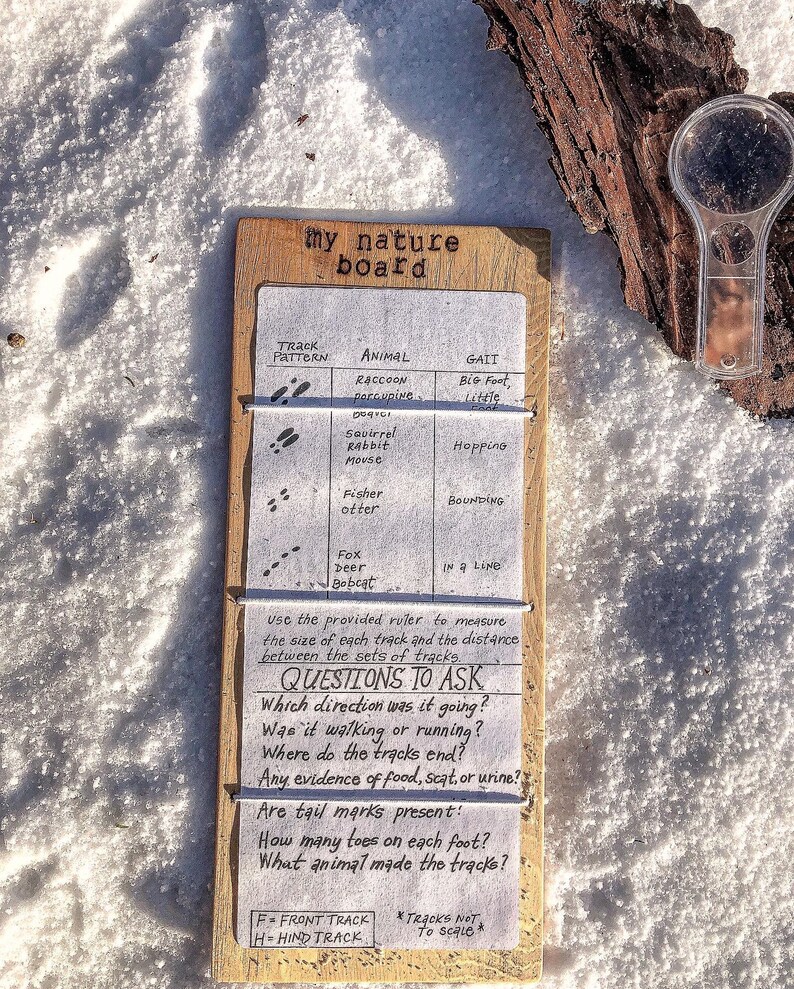 my nature
board
TRack PATTERN ANIMAL GAIT
Raccoon BIG FOOT,
porcupine Little
Beaver Foot
Squirrel
Rabbit HOPPING
Mouse
Fisher BOUNDING
otter
Fox
Deer IN a LINE
Bobcat
Use the provided ruler to measure
the size of each track and the distance
between the sets of tracks.
QUESTIONS TO ASK
Which direction was it going?
Was it walking or running?
Where do the tracks end?
Any evidence of food, scat, or urine?
Are tail marks present?
How many toes on each foot?
What animal made the tracks?
F = FRONT TRACK
H = HIND TRACK
*TRACKS NOT
TO Scale*